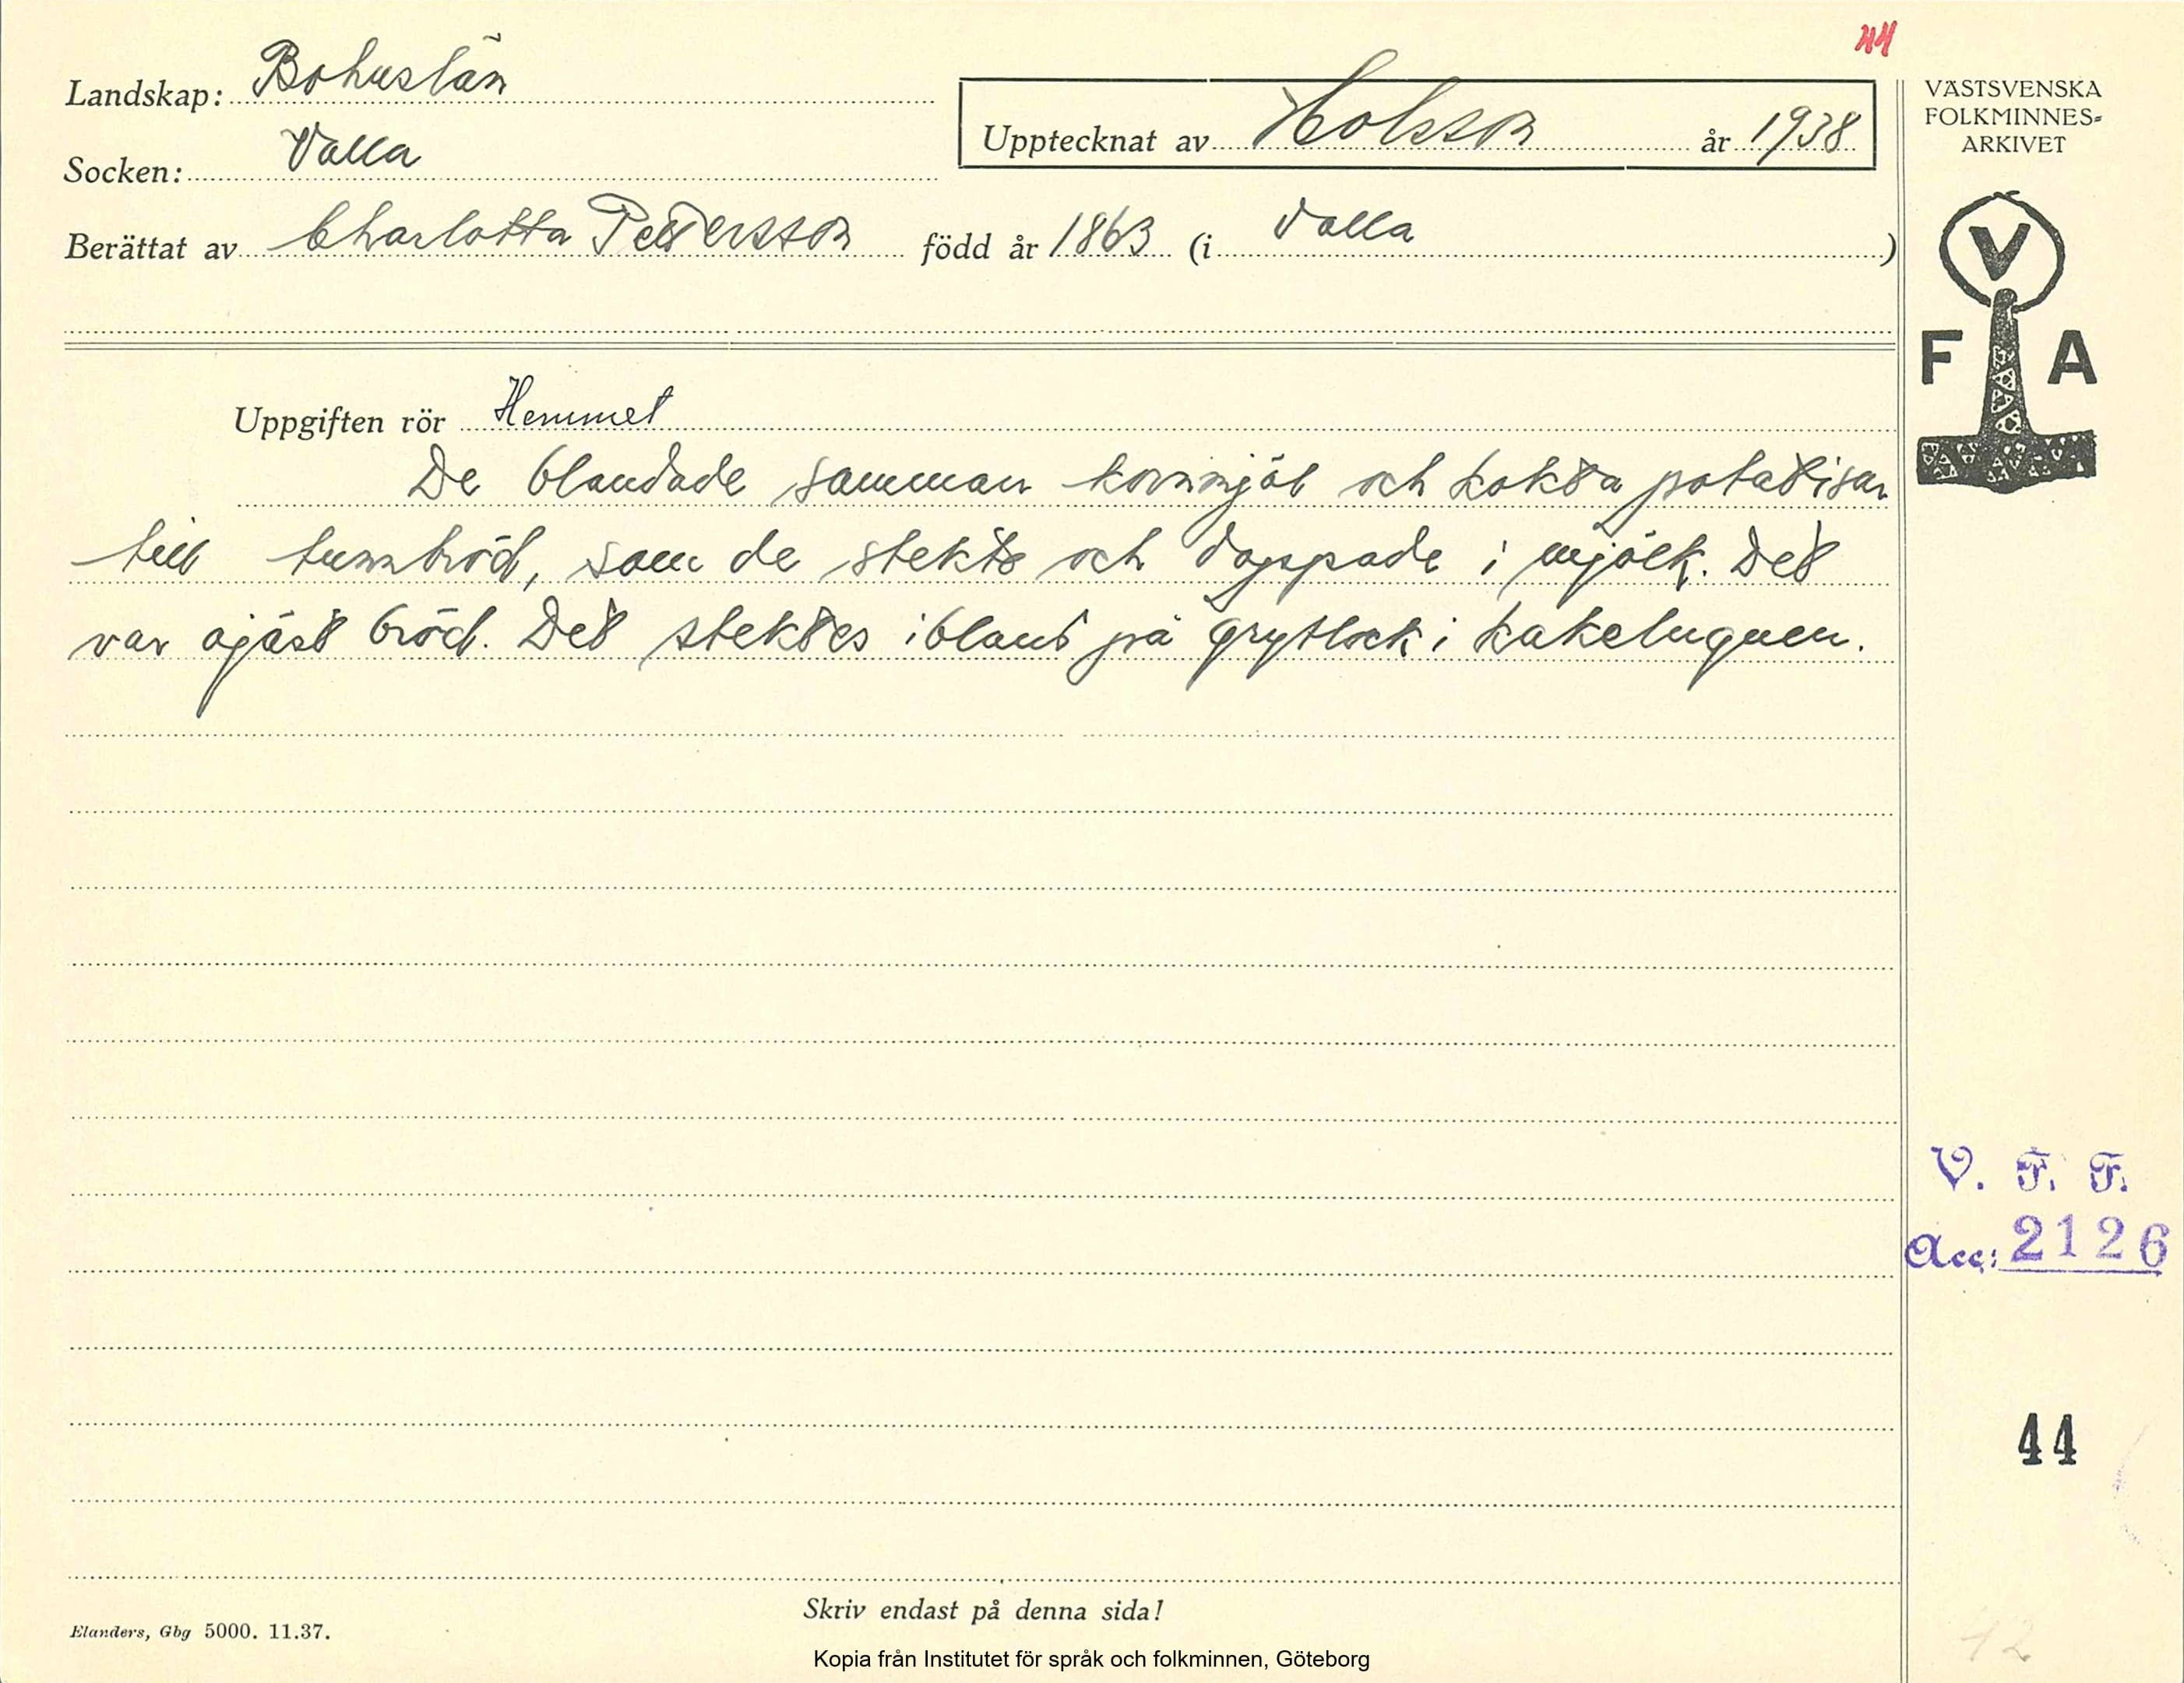 44
Landskap: Bohuslän
Socken: Valla
Upptecknat av Holsson år 1938
Berättat av Charlotta Pettersson född år 1863 (i Valla )
VÄSTSVENSKA
FOLKMINNES=
ARKIVET
V
F A
Uppgiften rör Hemmet
De blandade samman kornmjöl och kokta potatisar
till tunnbröd, som de stekte och doppade i mjölk. Det
var ojäst bröd. Det stektes ibland på grytlock i kakelugnen.
V. F. F.
Acc: 2126
44
Skriv endast på denna sida!
Elanders, Gbg 5000. 11.37.
12
Kopia från Institutet för språk och folkminnen, Göteborg